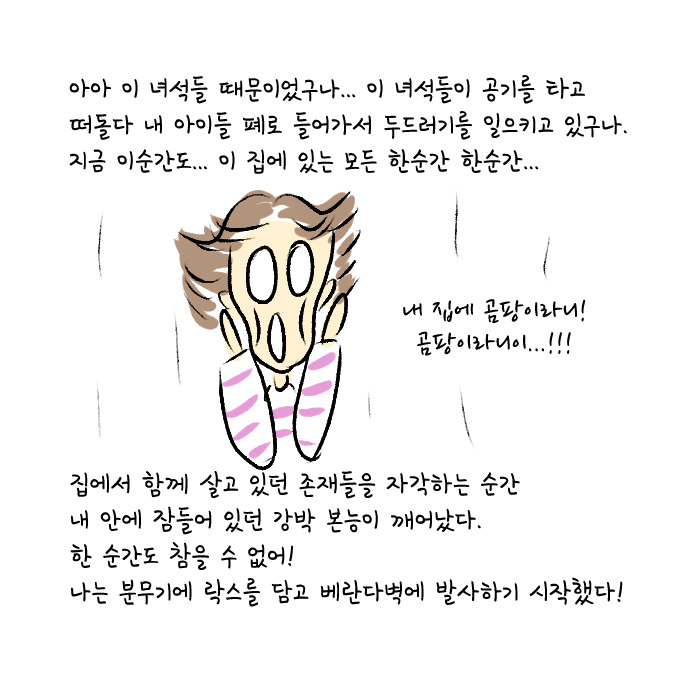 아아 이 녀석들 때문이었구나... 이 녀석들이 공기를 타고
떠돌다 내 아이들 폐로 들어가서 두드러기를 일으키고 있구나.
지금 이순간도... 이 집에 있는 모든 한순간 한순간...
내 집에 곰팡이라니!
곰팡이라니이...!!!
집에서 함께 살고 있던 존재들을 자각하는 순간
내 안에 잠들어 있던 강박 본능이 깨어났다.
한 순간도 참을 수 없어!
나는 분무기에 락스를 담고 베란다벽에 발사하기 시작했다!